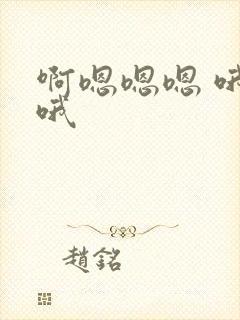 啊嗯嗯嗯 哦
哦
趙銘